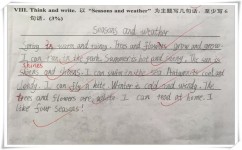 VIII. Think and write. 以 "Seasons and weather" 为主题写几句话，至少写 6
句话。(3%)
Seasons and weather
Spring is warm and rainy. Trees and flowers grow and grow.
I can in the park. Summer is hot and sunny. The sun is
shines
and shines. I can swim in the sea. Autumn is cool and
windy. I can fly a kite. Winter is cold and windy. The
trees and flowers are white. I can read at home. I
like four seasons!